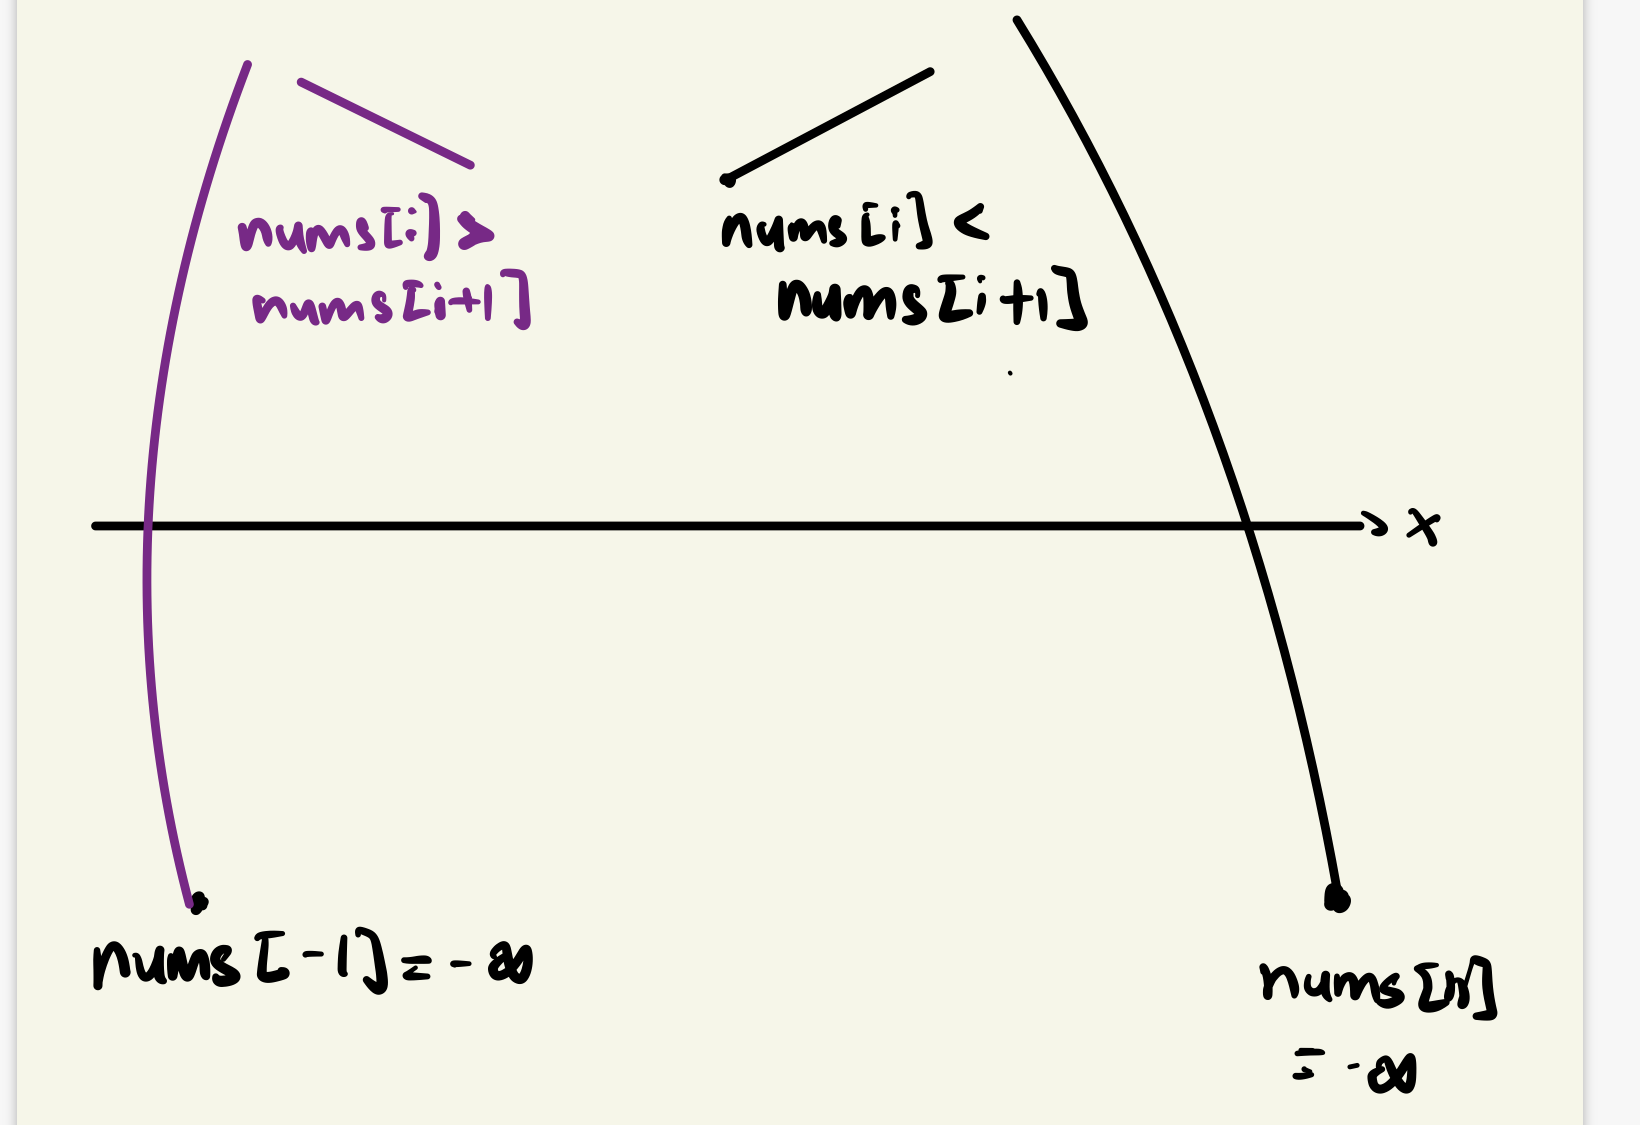 nums[i] >
nums[i+1]
nums[i] <
nums[i+1]
x
nums[-1] = - ∞
nums[n]
= -∞